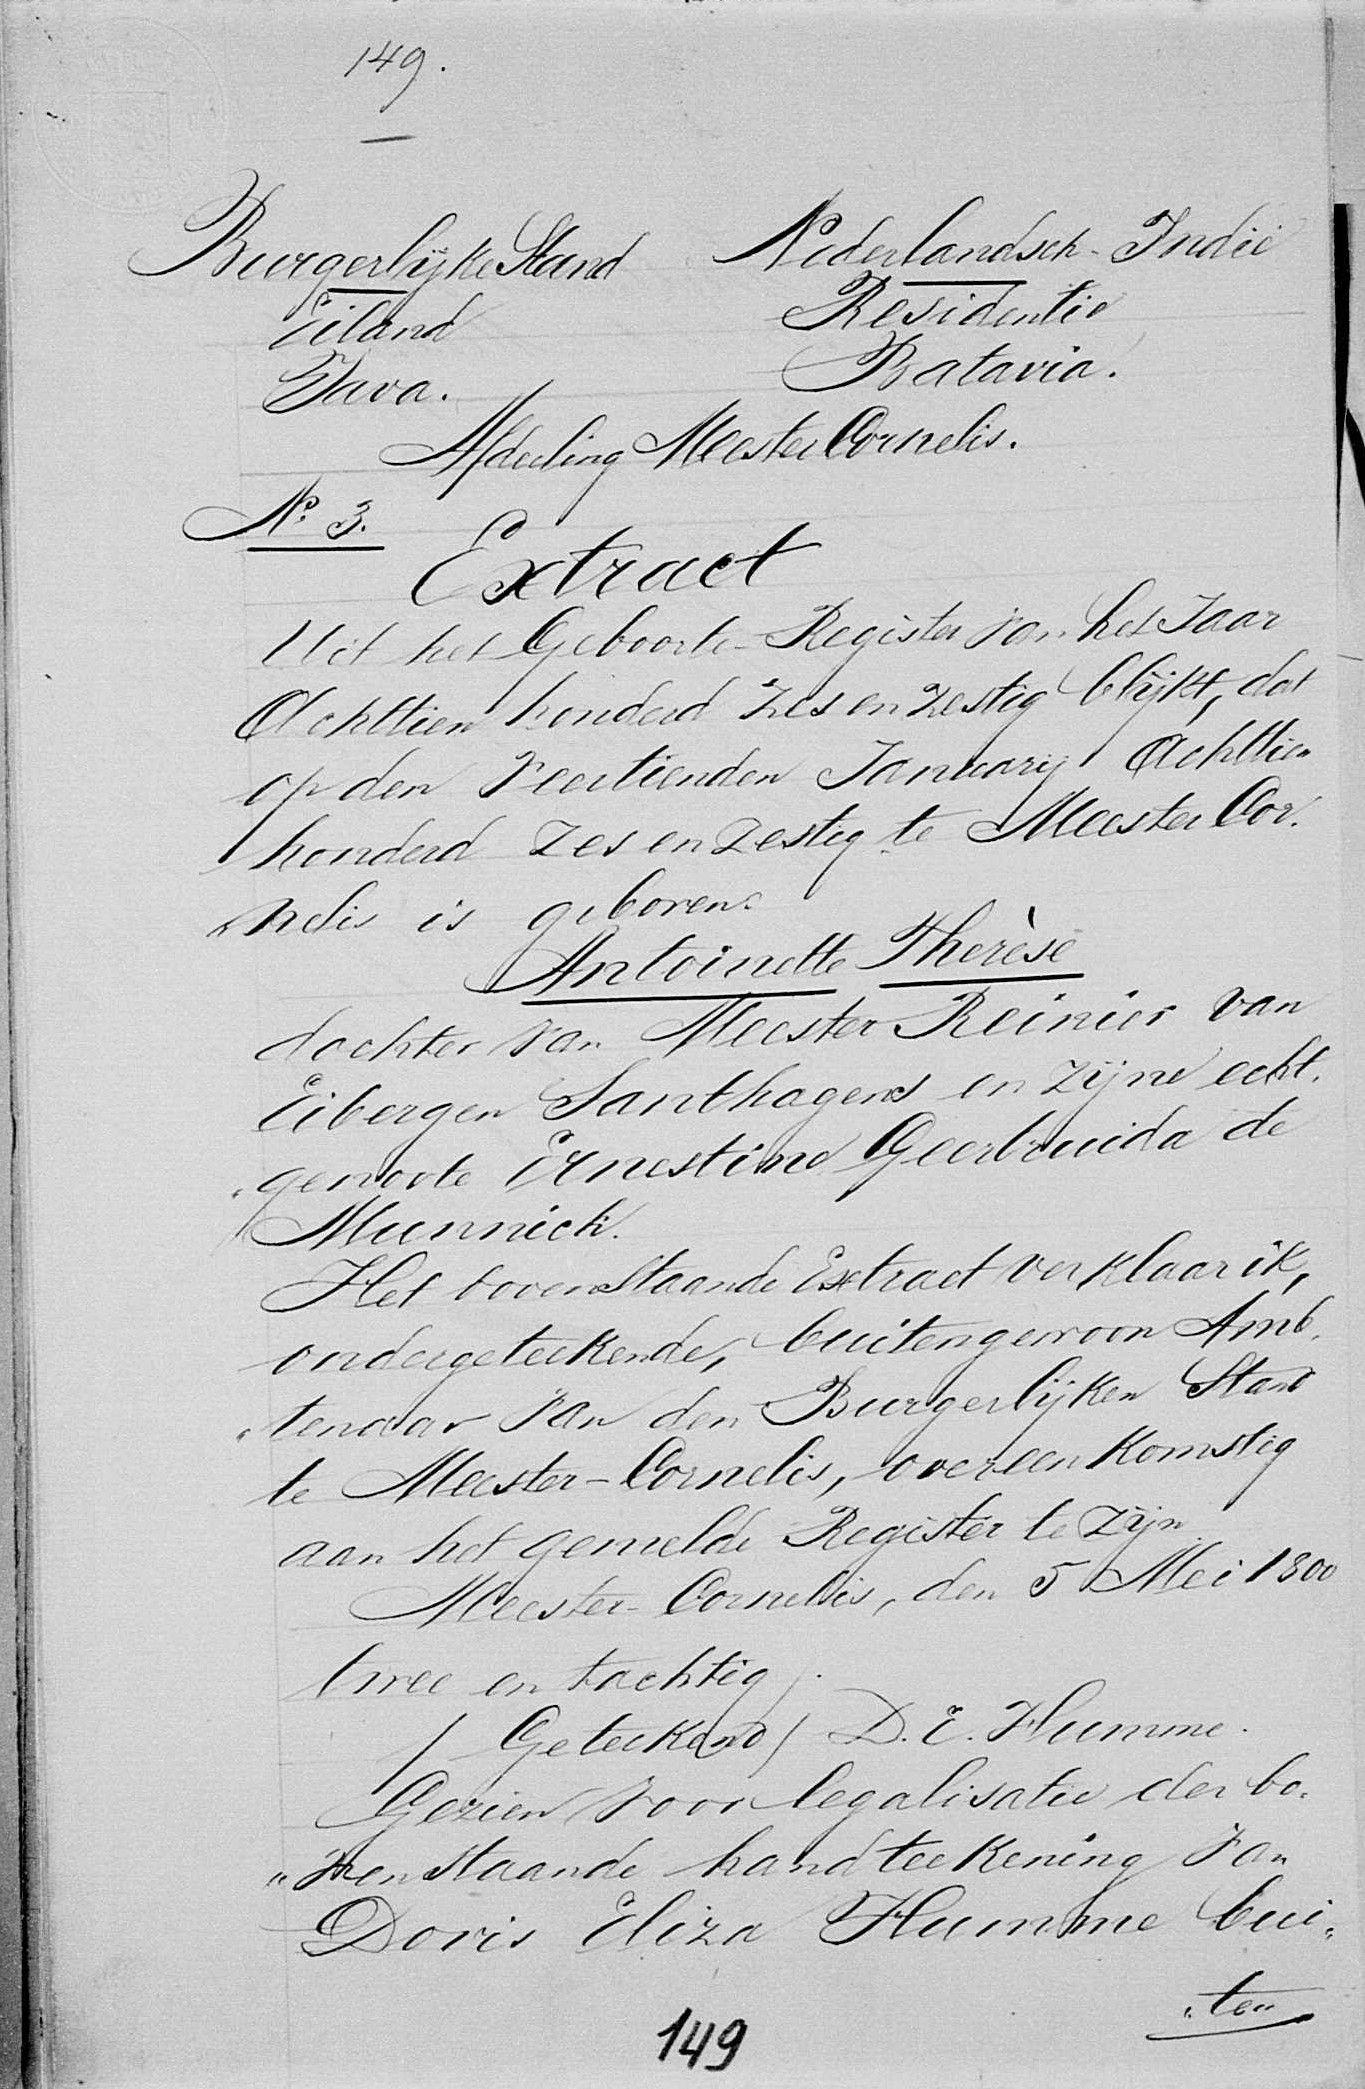 149.
Burgerlijke Stand Nederlandsch-Indië
Eiland Residentie
Java. Batavia.
Afdeeling Meester Cornelis.
No. 3.
Extract
Uit het Geboorte-Register van het Jaar
Achttien honderd zes en zestig blijkt, dat
op den veertienden January Achttien
honderd zes en zestig te Meester Cor„
„nelis is geboren:
Antoinette Therèse
dochter van Meester Reinier van
Eibergen Santhagens en zijne echt„
„genoote Ernestine Geertruida de
Munnick.
Het bovenstaande Extract verklaar ik,
ondergeteekende, buitengewoon Amb„
„tenaar van den Burgerlijken Stand
te Meester-Cornelis, overeenkomstig
aan het gemelde Register te zijn.
Meester-Cornelis, den 5 Mei 1800
twee en tachtig.
/ Geteekend / D. E. Humme.
Gezien voor legalisatie der bo„
„venstaande handteekening van
Doris Eliza Humme bui„
„ten„
149